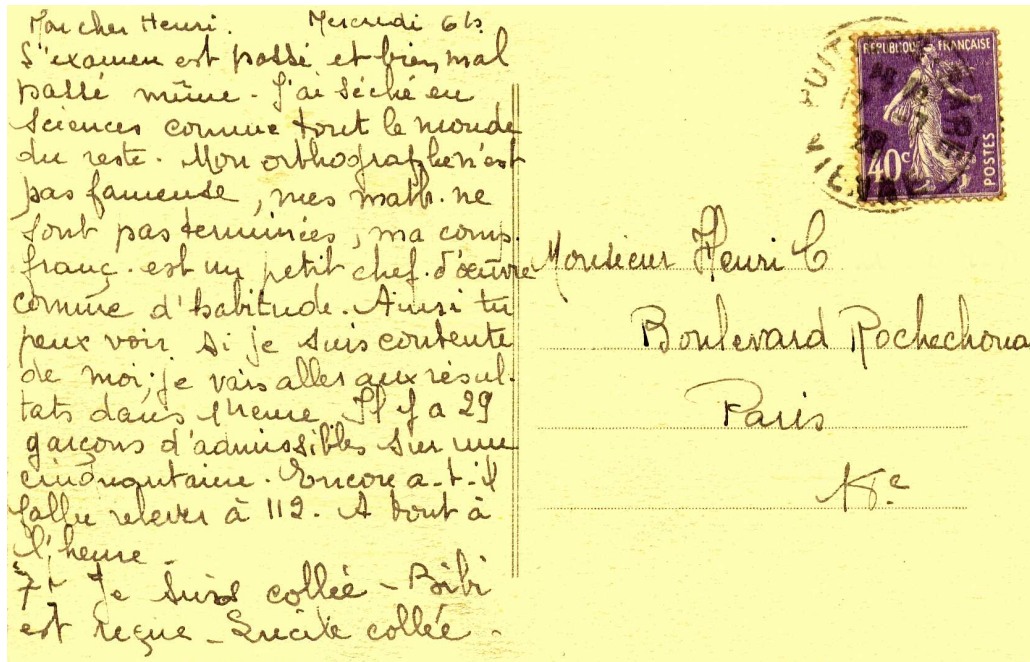 Mon cher Henri. Mercredi 6h.
L'examen est passé et bien mal
passé même. J'ai séché en
sciences comme tout le monde
du reste. Mon orthographe n'est
pas fameuse, mes math. ne
sont pas terminées, ma comp.
franç. est un petit chef. d'œuvre
comme d'habitude. Ainsi tu
peux voir si je suis contente
de moi; je vais aller aux résul-
tats dans 1 heure. Il y a 29
garçons d'admissibles sur une
cinquantaine. Encore a-t-il
fallu relever à 112. A tout à
l'heure
7h Je suis collée - Bibi
est reçue - Lucile collée -
REPUBLIQUE FRANÇAISE
40c
POSTES
Monsieur Henri C
Boulevard Rochechoua
Paris